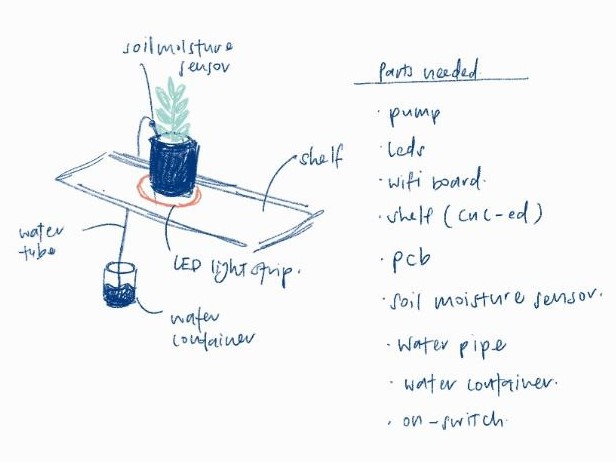 soil moisture
sensor
shelf
water
tube
LED light strip.
water
container
Parts needed.
· pump
· leds
· wifi board.
· shelf (cnc-ed)
· pcb
· soil moisture sensor.
· water pipe
· water container.
· on-switch.